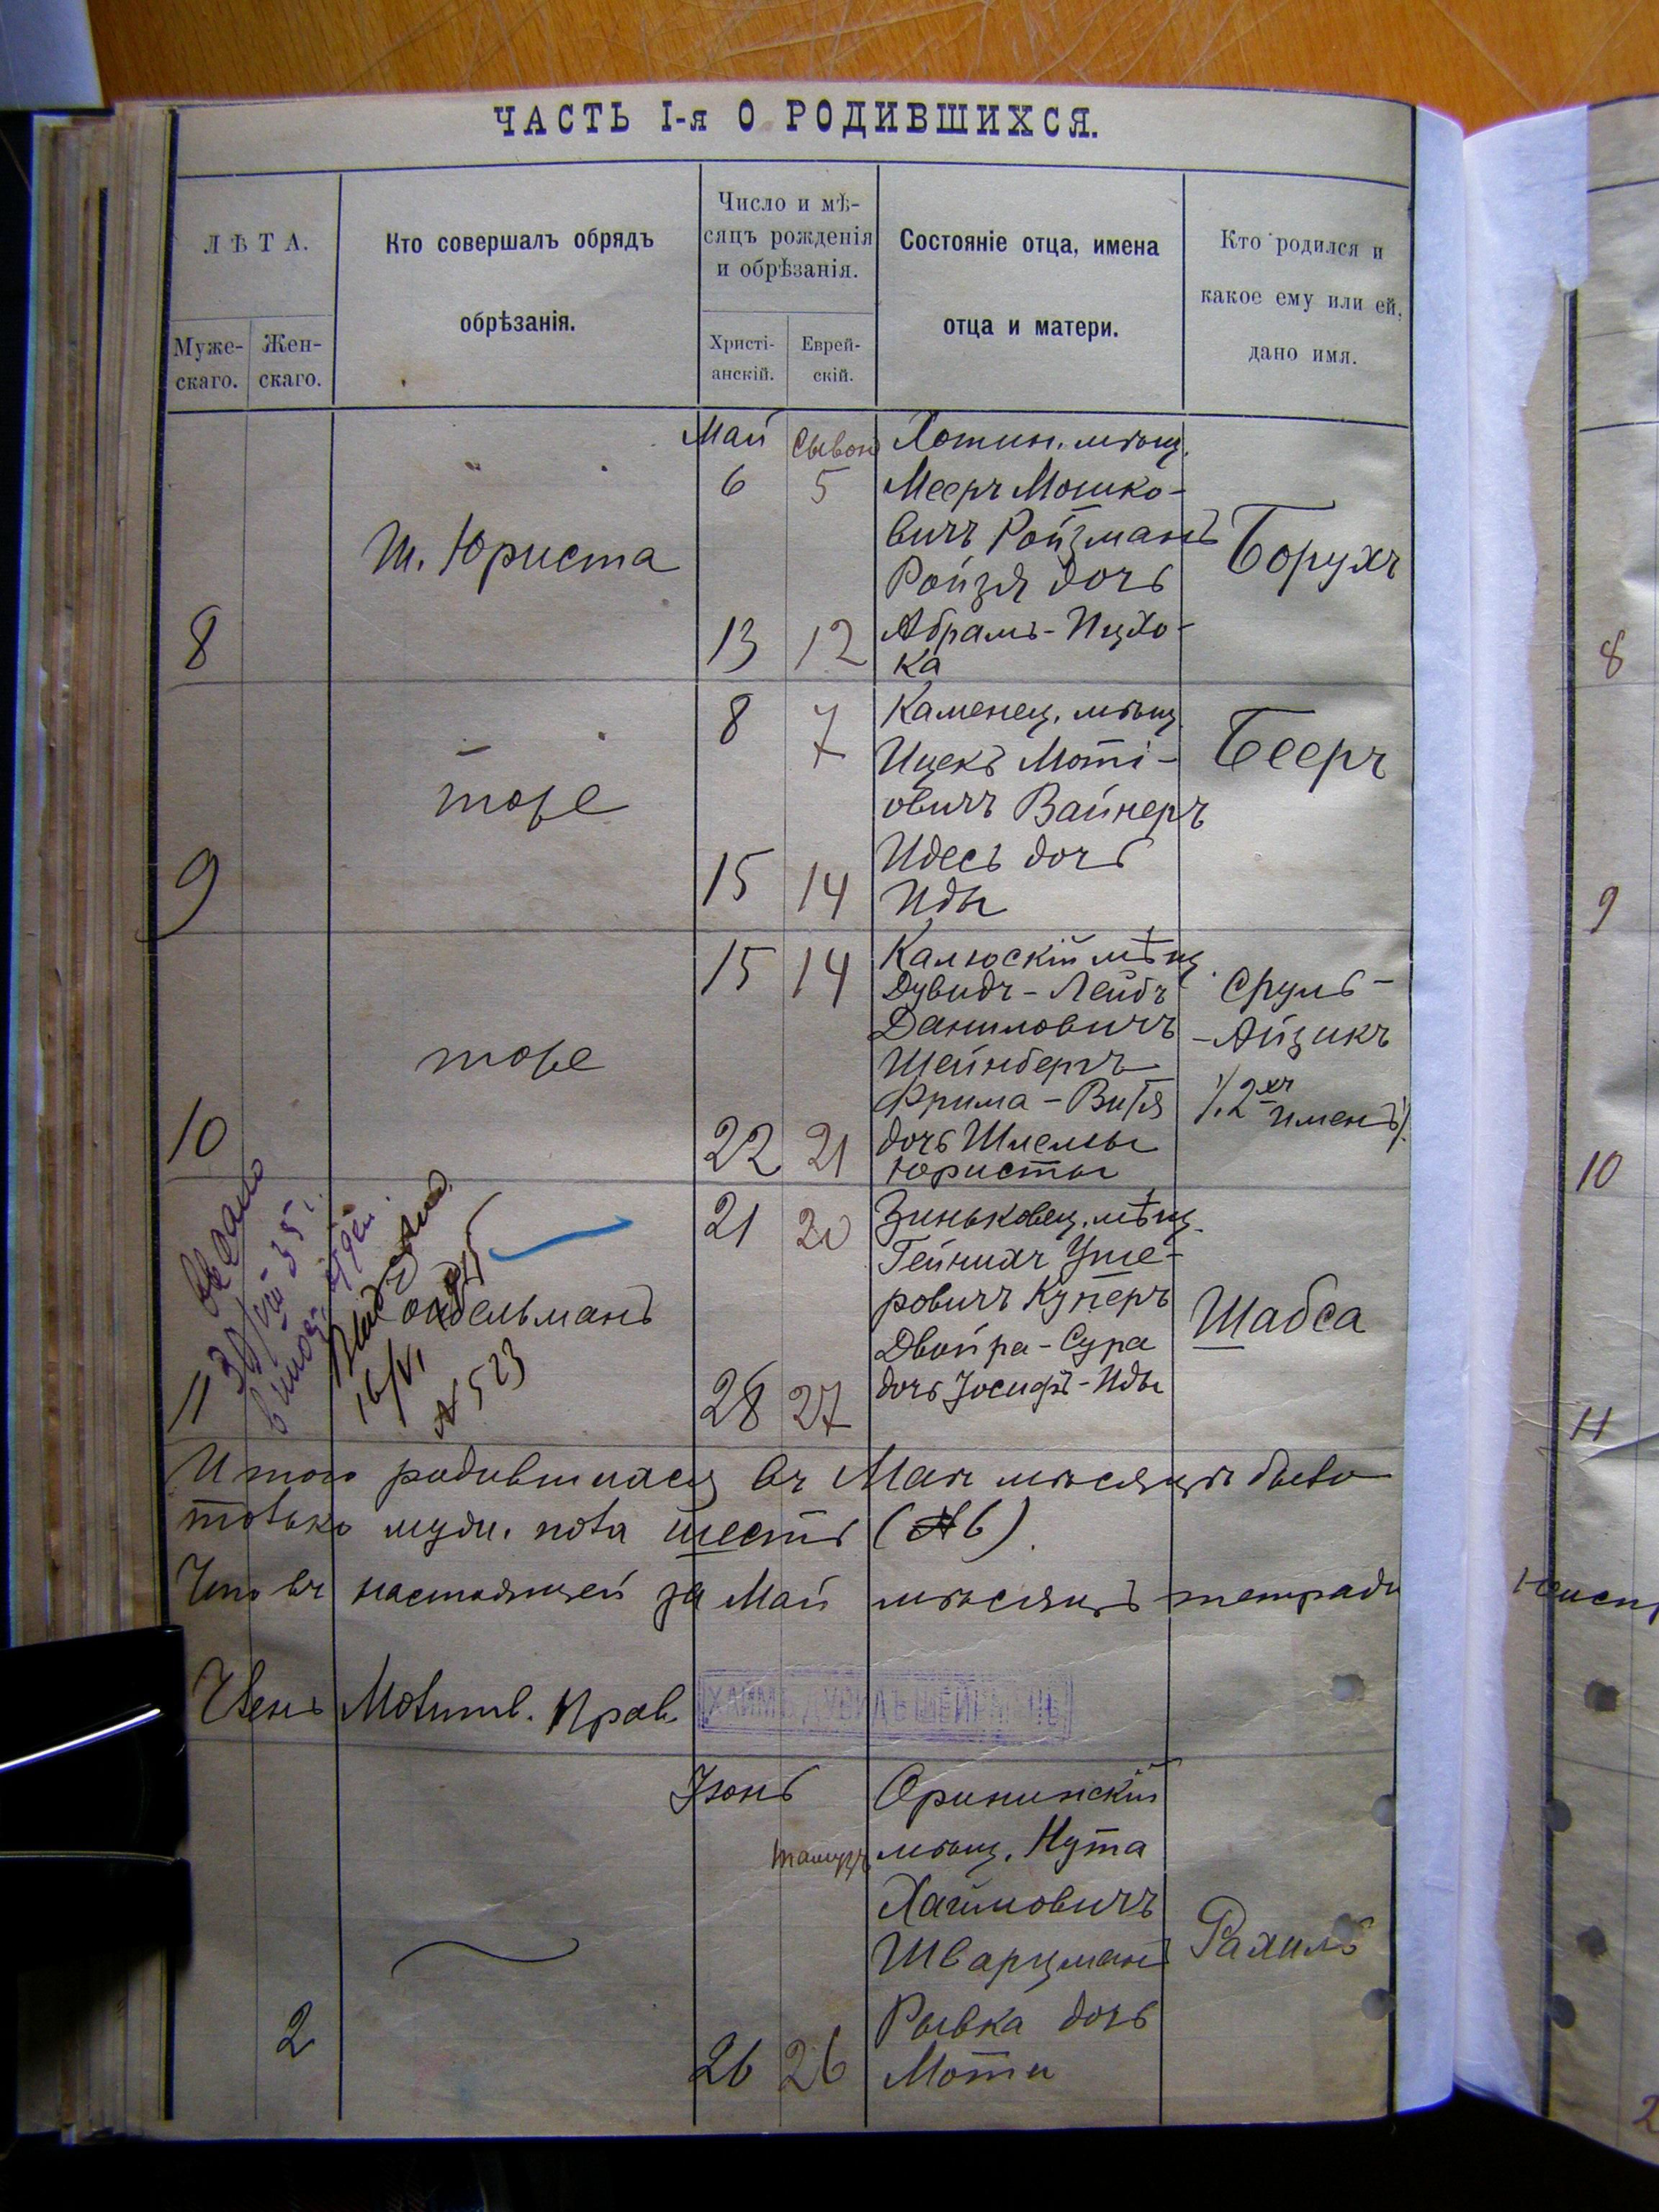 ЧАСТЬ I-я О РОДИВШИХСЯ.
ЛѢТА.
Муже-
скаго.
Жен-
скаго.
Кто совершалъ обрядъ
обрѣзанія.
Число и мѣ-
сяцъ рожденія
и обрѣзанія.
Христі-
анскій.
Еврей-
скій.
Состояніе отца, имена
отца и матери.
Кто родился и
какое ему или ей,
дано имя.
8
Ш. Юриста
Май
6
13
Сывон
5
12
Хотин. мѣщ.
Мееръ Мошко-
вичъ Ройзманъ
Ройзя дочь
Абрамъ-Ицхо-
ка
Борухъ
9
тоже
8
15
7
14
Каменец. мѣщ.
Ицекъ Моті-
овичъ Вайнеръ
Идесъ дочь
Иды
Бееръ
10
тоже
15
22
14
21
Калюскій мѣщ.
Дувидъ-Лейбъ
Даниловичъ
Шейнбергъ
Фрима-Витя
дочь Шлемы
Юристы
Сруль-
-Айзикъ
/.2хъ
именъ/.
11
30/VIII 35
16/VI
№ 523
21
28
20
27
Зиньковец. мѣщ.
Гейнихъ Уше-
ровичъ Куперъ
Двойра-Сура
дочь Іосифъ-Иды
Шабса
Итого родившихся въ Маѣ мѣсяцѣ было
только муж. пола шесть (№6).
Что въ настоящей за Май мѣсяцъ тетради
Членъ Молитв. Прав.
ХАЙМЪ ДУВИДЪ
2
Іюнь
26
тамузъ
26
Орининскій
мѣщ. Нута
Хаймовичъ
Шварцманъ
Рывка дочь
Моти
Рахиль
8
9
10
11
2